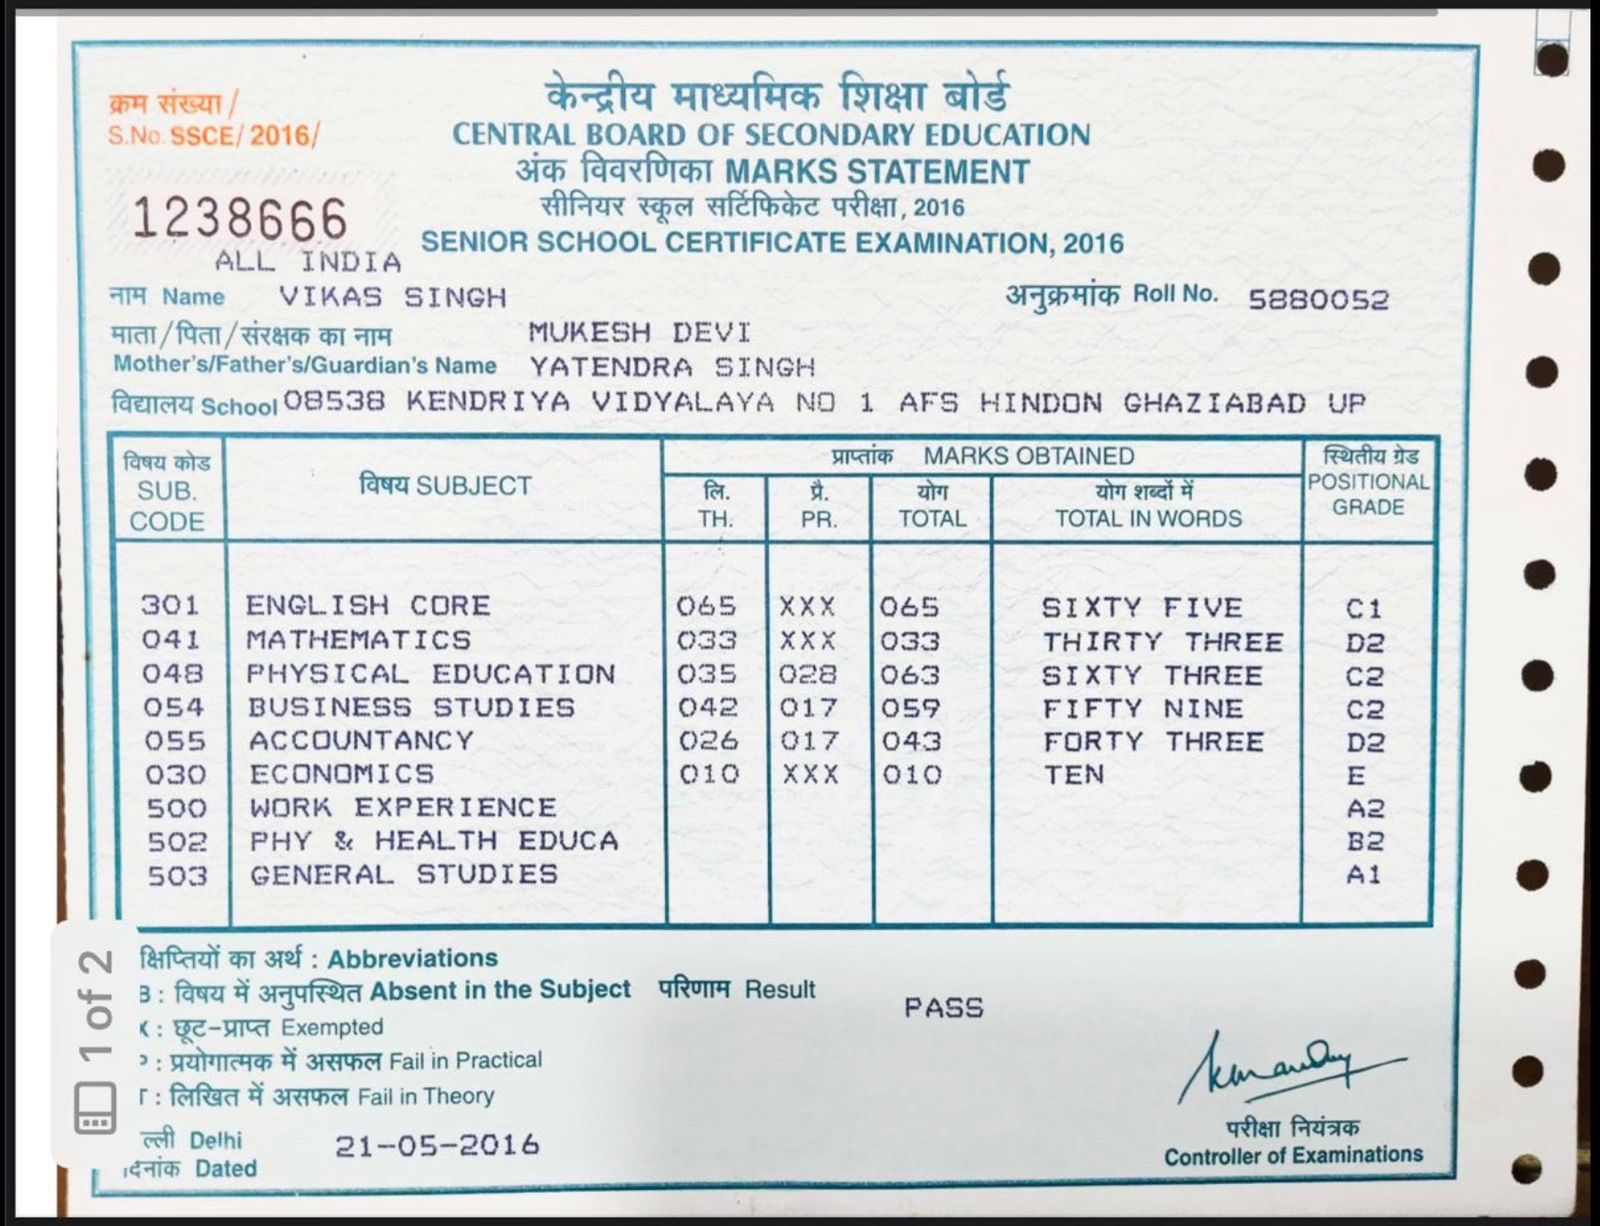 क्रम संख्या /
S.No. SSCE/ 2016/
1238666
केन्द्रीय माध्यमिक शिक्षा बोर्ड
CENTRAL BOARD OF SECONDARY EDUCATION
अंक विवरणिका MARKS STATEMENT
सीनियर स्कूल सर्टिफिकेट परीक्षा, 2016
SENIOR SCHOOL CERTIFICATE EXAMINATION, 2016
ALL INDIA
नाम Name VIKAS SINGH अनुक्रमांक Roll No. 5880052
माता/पिता/संरक्षक का नाम MUKESH DEVI
Mother's/Father's/Guardian's Name YATENDRA SINGH
विद्यालय School 08538 KENDRIYA VIDYALAYA NO 1 AFS HINDON GHAZIABAD UP
विषय कोड SUB. CODE विषय SUBJECT प्राप्तांक MARKS OBTAINED स्थितीय ग्रेड POSITIONAL GRADE
लि. TH. प्रै. PR. योग TOTAL योग शब्दों में TOTAL IN WORDS
301 ENGLISH CORE 065 XXX 065 SIXTY FIVE C1
041 MATHEMATICS 033 XXX 033 THIRTY THREE D2
048 PHYSICAL EDUCATION 035 028 063 SIXTY THREE C2
054 BUSINESS STUDIES 042 017 059 FIFTY NINE C2
055 ACCOUNTANCY 026 017 043 FORTY THREE D2
030 ECONOMICS 010 XXX 010 TEN E
500 WORK EXPERIENCE A2
502 PHY & HEALTH EDUCA B2
503 GENERAL STUDIES A1
क्षिप्तियों का अर्थ : Abbreviations
: विषय में अनुपस्थित Absent in the Subject परिणाम Result PASS
: छूट-प्राप्त Exempted
: प्रयोगात्मक में असफल Fail in Practical
: लिखित में असफल Fail in Theory
ल्ली Delhi 21-05-2016
दिनांक Dated
परीक्षा नियंत्रक
Controller of Examinations
1 of 2